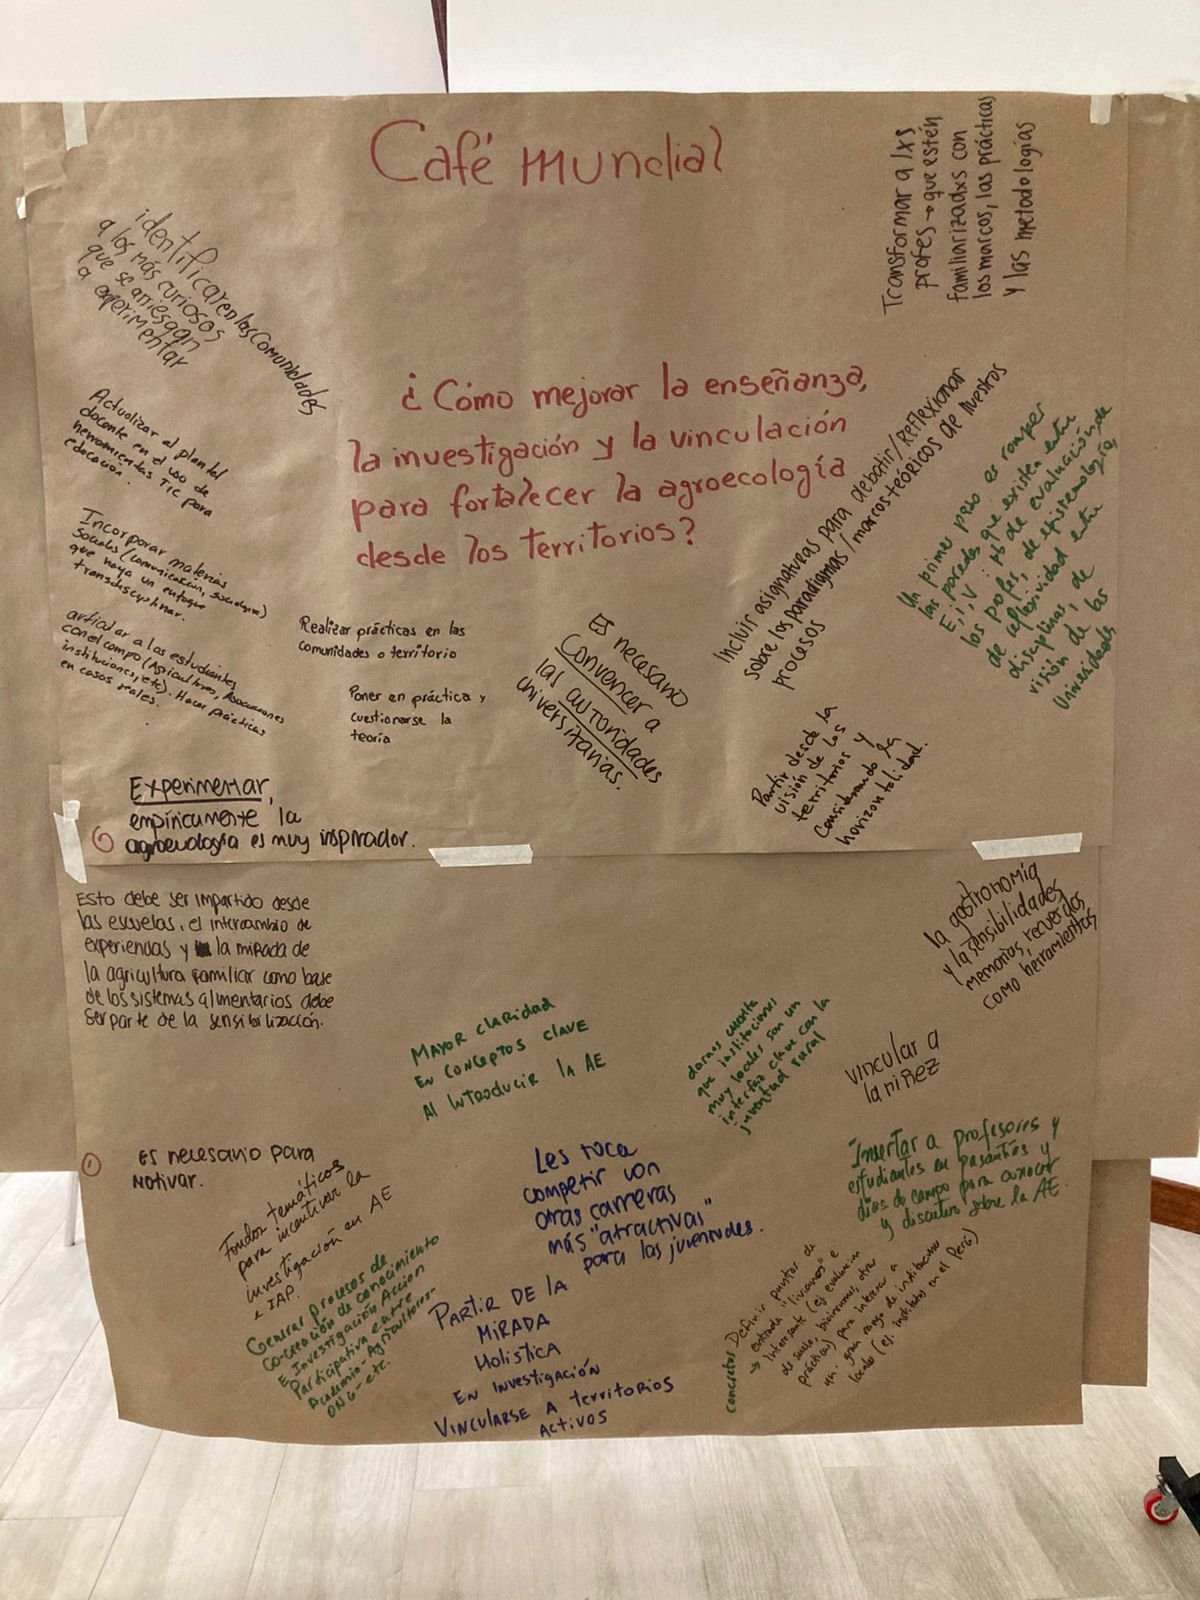 Café mundial
identificar en las comunidades
a los más curiosos
que se arriesgan
a experimentar
Transformar a lxs
profes → que estén
familiarizadxs con
los marcos, las prácticas
y las metodologías
¿Cómo mejorar la enseñanza,
la investigación y la vinculación
para fortalecer la agroecología
desde los territorios?
Actualizar al plantel
docente en el uso de
herramientas TIC para
educación.
Incorporar materias
sociales (comunicación, sociología)
que haya un enfoque
transdisciplinar.
articular a los estudiantes
con el campo (Agricultores, Asociaciones
instituciones, etc). Hacer prácticas
en casos reales.
Realizar prácticas en las
comunidades o territorio
Poner en práctica y
cuestionarse la
teoría
Es necesario
Convencer a
las autoridades
universitarias.
Incluir asignaturas para debatir/Reflexionar
sobre los paradigmas/marcos teóricos de nuestros
procesos
Un primer paso es romper
las paredes que existen entre
E, i, V : de evaluación de
los profes, de epistemología,
de reflexividad entre
disciplinas, de
visión de las
Universidades
Partir desde la
visión de los
territorios y
considerando la
horizontalidad.
Experimentar,
empíricamente la
agroecología es muy inspirador.
Esto debe ser impartido desde
las escuelas, el intercambio de
experiencias y la mirada de
la agricultura familiar como base
de los sistemas alimentarios debe
ser parte de la sensibilización.
la gastronomía
y la sensibilidades
memorias, recuerdos
como herramientas
MAYOR CLARIDAD
EN CONCEPTOS CLAVE
AL INTRODUCIR LA AE
darnos cuenta
que instituciones
muy locales son un
interfaz clave con la
juventud rural
vincular a
la niñez
Es necesario para
motivar.
Fondos temáticos
para incentivar la
investigación en AE
e IAP.
Generar procesos de
Co-creación de conocimiento
E Investigación Acción
Participativa entre
Academia-Agricultores-
ONG-etc.
Les toca
competir con
otras carreras
más "atractivas"
para las juventudes.
Insertar a profesores y
estudiantes en pasantías y
días de campo para conocer
y discutir sobre la AE.
PARTIR DE LA
MIRADA
Holistica
EN INVESTIGACIÓN
VINCULARSE A TERRITORIOS
ACTIVOS
concretos Definir puntos de
entrada "livianos" e
→ Interesante (ej evaluacion
de suelo, bioinsumos, otra
práctica) para interesar a
un gran rango de instituciones
locales (ej. institutos en el Perú)